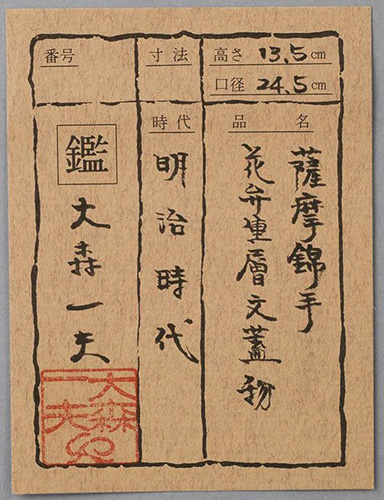 高さ 13.5cm
口径 24.5cm
寸法
番号
品名
薩摩錦手
花弁重層文蓋物
時代
明治時代
鑑
大森一夫
大森
一夫